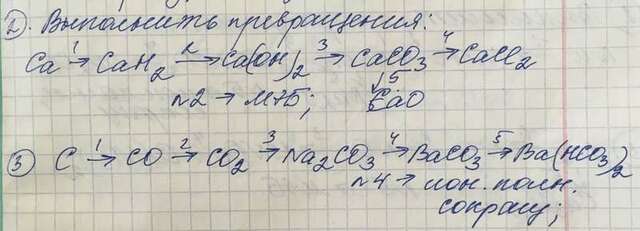 2). Выполнить превращения:
Ca 1→ CaH2 2→ Ca(OH)2 3→ CaCO3 4→ CaCl2
n2 → МЭБ; ↓5 CaO
3) C 1→ CO 2→ CO2 3→ Na2CO3 4→ BaCO3 5→ Ba(HCO3)2
n4 → ион. полн.
сокращ;